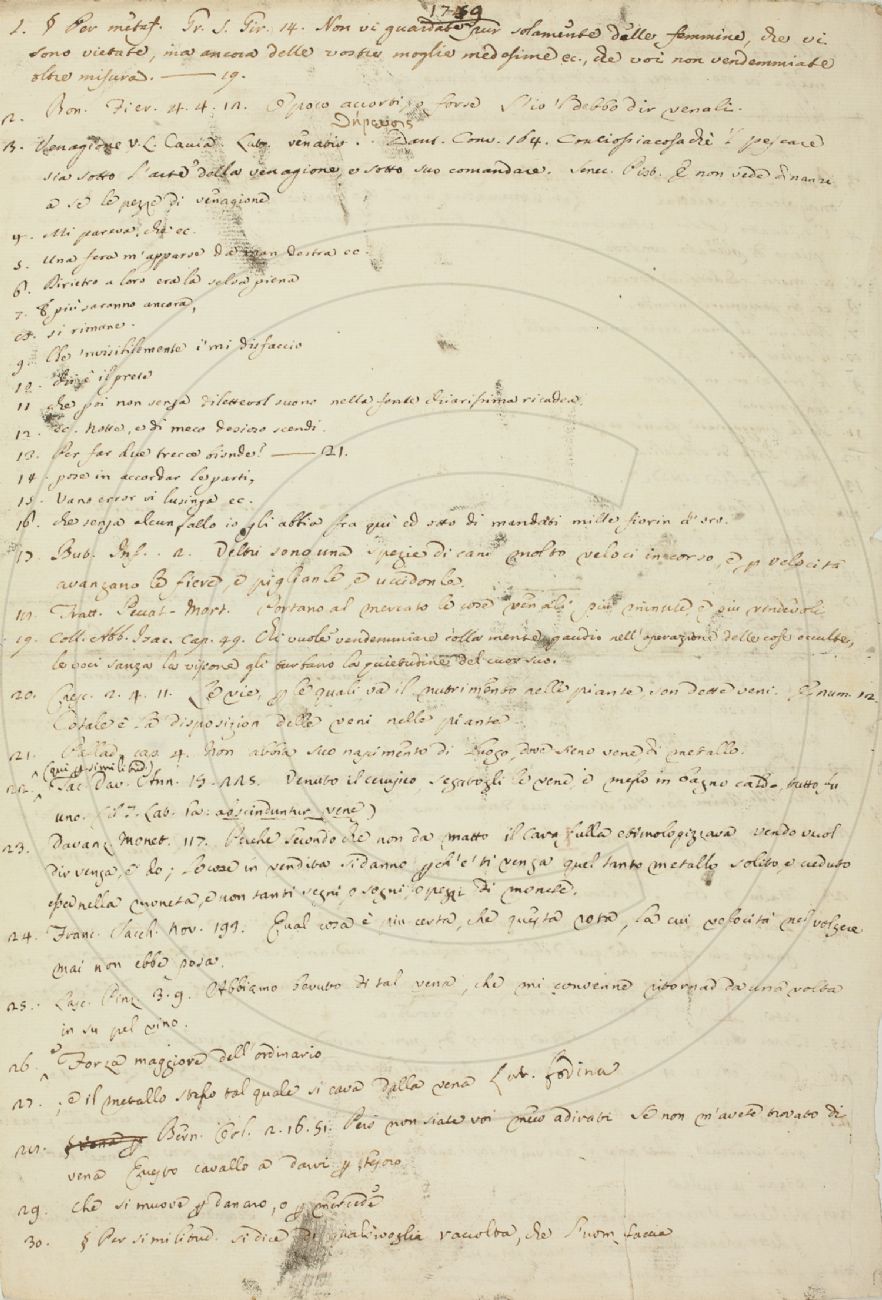 1749
1. § Per metaf. Tr. S. Gir. 14. Non vi guardate pur solamente delle femmine, che vi
sono vietate, ma ancora delle vostre moglie medesime ec., che voi non vendemmiate
oltre misura. —— 19.
2. Bon. Fier. 4. 4. 12. E poco accorti, o forse s'io 'l debbo dir venali.
3. Venagione V. L. Caccia Lat. venatio. Dant. Conv. 164. Conciossiacosachè 'l pescare
sia sotto l'arte della venagione, e sotto suo comandare. Senec. Pist. E non vede dinanzi
a sè le pezze di venagione
4. Mi pareva, che ec.
5. Una fera m'apparse da man destra ec.
6. Dirietro a loro era la selva piena
7. E più saranno ancora,
8. si rimane.
9. Che 'nvisibilemente i' mi disfaccio
10. il prete
11. che poi non senza dilettevol suono nella fonte chiarissima ricadea.
12. ec. Notte, e di meco desioso scendi.
13. Per far due trecce bionde! —— 21.
14. pose in accordar le parti,
15. Vano error vi lusinga ec.
16. che senza alcun fallo io gli abbia fra qui ed otto di mandati mille fiorin d'oro.
17. But. Inf. . 2. Veltri sono una spezie di cani molto veloci in corso, e p velocità
avanzano le fiere, e piglianle, e uccidonle.
18. Tratt. Peccat. Mort. Portano al mercato le cose venali più minute, e più vendevoli
19. Coll. Abb. Isac. Cap. 49. Chi vuole vendemmiare colla mente gaudio nell'operazione delle cose occulte,
le voci sanza la visione gli turbano la quietudine del cuor suo.
20. Cresc. 2. 4. 11. Le vie, p le quali va il nutrimento nelle piante son dette veni. E num. 12.
Cotale è la disposizion delle veni nelle piante.
21. Pallad. cap. 4. Non abbia suo nascimento di luogo, dove sieno vene di metallo.
(qui p similitud.)
22. Tac. Dav. Ann. 15. 225. Venuto il cerusico segatogli le vene, e messo in bagno caldo, tutto fu
uno. (il T. Lat. ha: abscinduntur venæ)
23. Davanz. Monet. 117. Perchè secondo che non da matto il Carafulla etimologizzava vendo vuol
dir venga, e do; le cose in vendita si danno pch'e' ti venga quel tanto metallo solito, e creduto
essere nella moneta, e non tanti segni, o sogni, o pezzi di monete.
24. Franc. Sacch. Nov. 199. Qual cosa è più certa, che questa rota, la cui velocità nel volgere
mai non ebbe posa.
25. Lasc. Pinz. 3. 9. Abbiamo bevuto di tal vena, che mi convenne ritornar da una volta
in su pel vino.
26. Forza maggiore dell'ordinario
27. ; e il metallo stesso tal quale si cava dalla vena Lat. fodina
28. Bern. Orl. 2. 16. 51. Però non siate voi meco adirati Se non m'avete trovato di
vena Questo cavallo a darvi p tesoro
29. che si muove p danaro, o p mercede
30. § Per similitud. si dice di qualsivoglia raccolta, che l'uom faccia